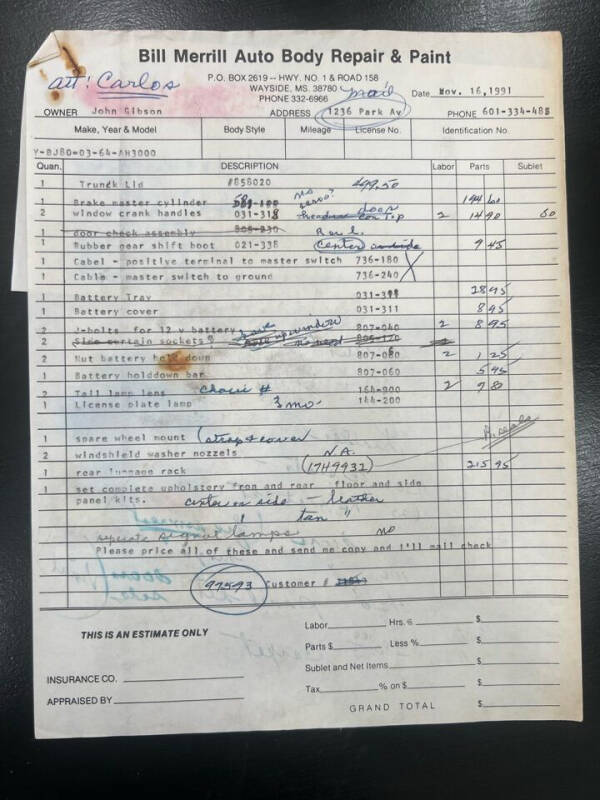 Bill Merrill Auto Body Repair & Paint
att: Carlos
P.O. BOX 2619 -- HWY. NO. 1 & ROAD 158
WAYSIDE, MS. 38780
PHONE 332-6966
mail
Date Nov. 16,1991
OWNER John Gibson ADDRESS 1236 Park Av PHONE 601-334-48
Make, Year & Model Body Style Mileage License No. Identification No.
Y-BJ8O-03-64-AH3000
Quan. DESCRIPTION Labor Parts Sublet
1 Trunck Lid #858020 499.50
1 Brake master cylinder no servo? 194
2 window crank handles 031-318 door 2 14 90 60
1 door check assembly 805-230 R or L
1 Rubber gear shift boot 021-338 center 9 45
1 Cabel - positive terminal to master switch 736-180
1 Cable - master switch to ground 736-240
1 Battery Tray 28 95
1 Battery cover 031-311 8 95
2 J-bolts for 12 v battery 807-040 2 8 95
2 Side curtain sockets?
2 Nut battery hold down 807-080 2 1 25
1 Battery holddown bar 807-060 5 45
2 Tail lamp lens Chassi # 164-900 2 9 80
1 License plate lamp 3 mo 164-200
1 spare wheel mount (strap & cover
2 windshield washer nozzels N.A.
1 rear luggage rack (17H9932) 215 95
1 set complete upholstery fron and rear floor and side
panel kits. center or side - leather
tan "
separate signal lamps no
Please price all of these and send me copy and I'll mail check
97593 Customer #
THIS IS AN ESTIMATE ONLY
Labor Hrs. @ $
Parts $ Less % $
Sublet and Net Items $
Tax % on $ $
GRAND TOTAL $
INSURANCE CO.
APPRAISED BY